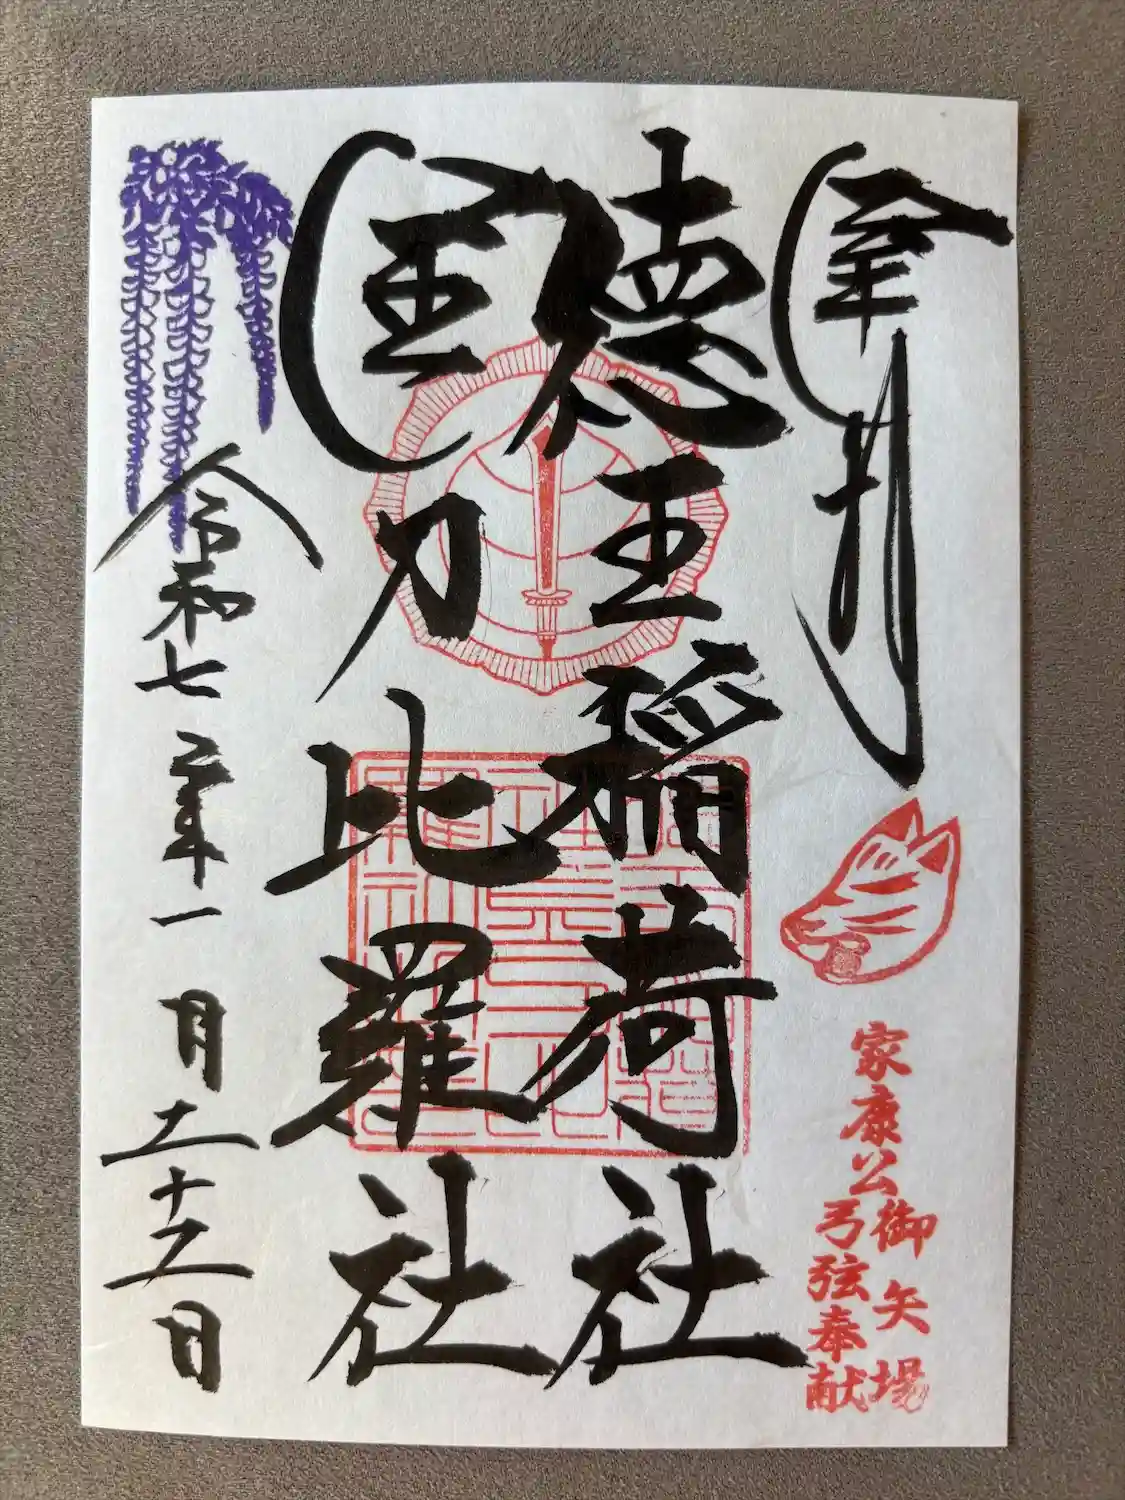 奉拝
家康公御矢場
弓弦奉献
徳王稲荷社
金刀比羅社
令和七年十一月二十六日